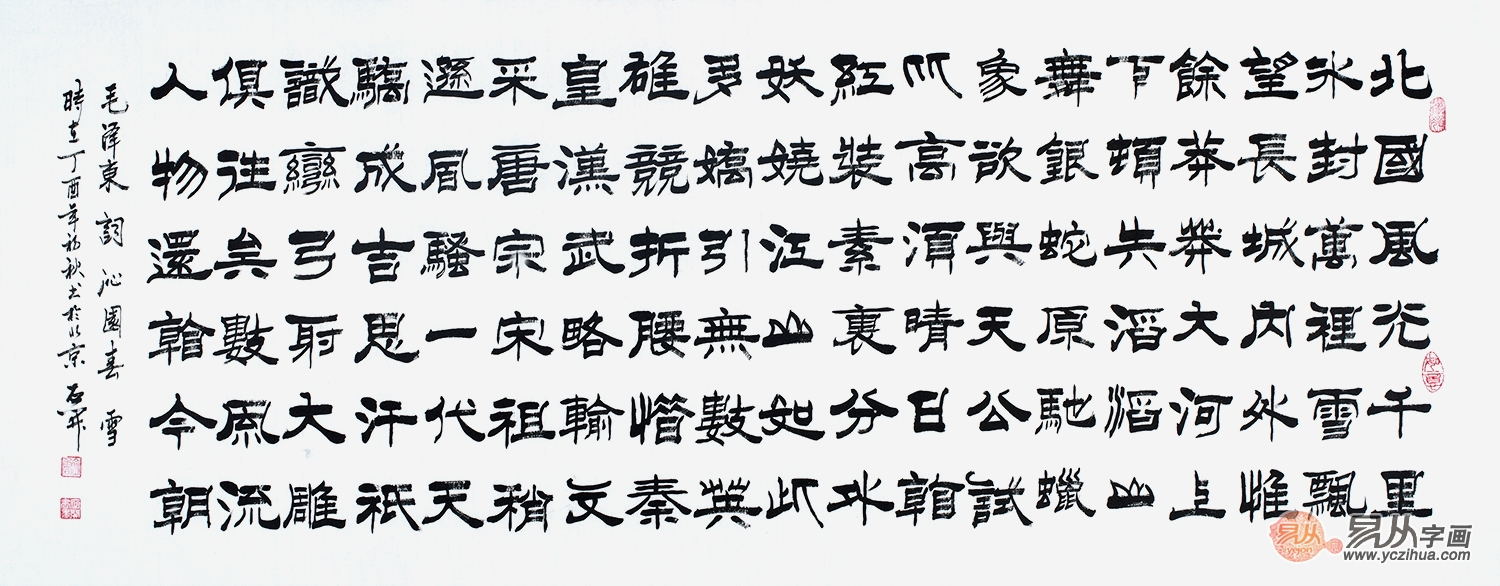 北國風光千里
冰封萬裡雪飄
望長城內外惟
餘莽莽大河上
下頓失滔滔山
舞銀蛇原馳蠟
象欲與天公試
比高須晴日看
紅裝素裹分外
妖嬈江山如此
多嬌引無數英
雄競折腰惜秦
皇漢武略輸文
采唐宗宋祖稍
遜風騷一代天
驕成吉思汗衹
識彎弓射大雕
俱往矣數風流
人物還看今朝
毛澤東詞沁園春雪
時在丁酉年初秋書於北京
易从
易从字画
www.yczihua.com